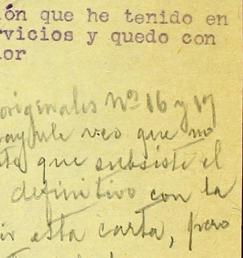 ión que he tenido en
rvicios y quedo con
or
origenales Nº 16 y 17
veo que no
que subsiste el
definitivo con la
ir esta carta, pero